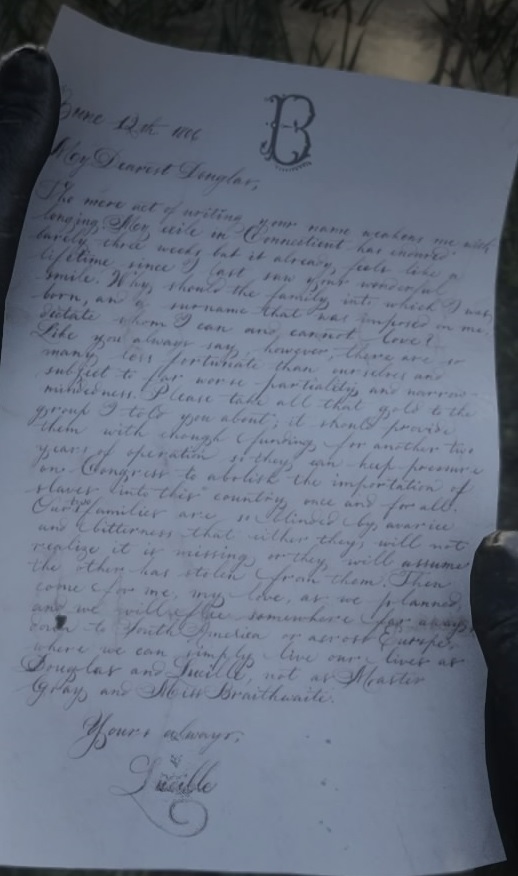 B
June 12th 1806
My Dearest Douglas,
The mere act of writing your name weakens me with
longing. My exile in Connecticut has endured
barely three weeks but it already feels like a
lifetime since I last saw your wonderful
smile. Why, should the family into which I was
born, and a surname that was imposed on me
dictate whom I can and cannot love?
Like you always say, however, there are so
many less fortunate than ourselves and
subject to far worse partiality and narrow-
mindedness. Please take all that gold to the
group I told you about; it should provide
them with enough funding for another two
years of operation so they can keep pressure
on Congress to abolish the importation of
slaves into this country once and for all.
Our two families are so blinded by avarice
and bitterness that either they will not
realize it is missing or they will assume
the other has stolen from them. Then
come for me, my love, as we planned,
and we will flee somewhere far away,
down to South America or across Europe,
where we can simply live our lives as
Douglas and Lucille, not as Master
Gray and Miss Braithwaite.
Yours always,
Lucille